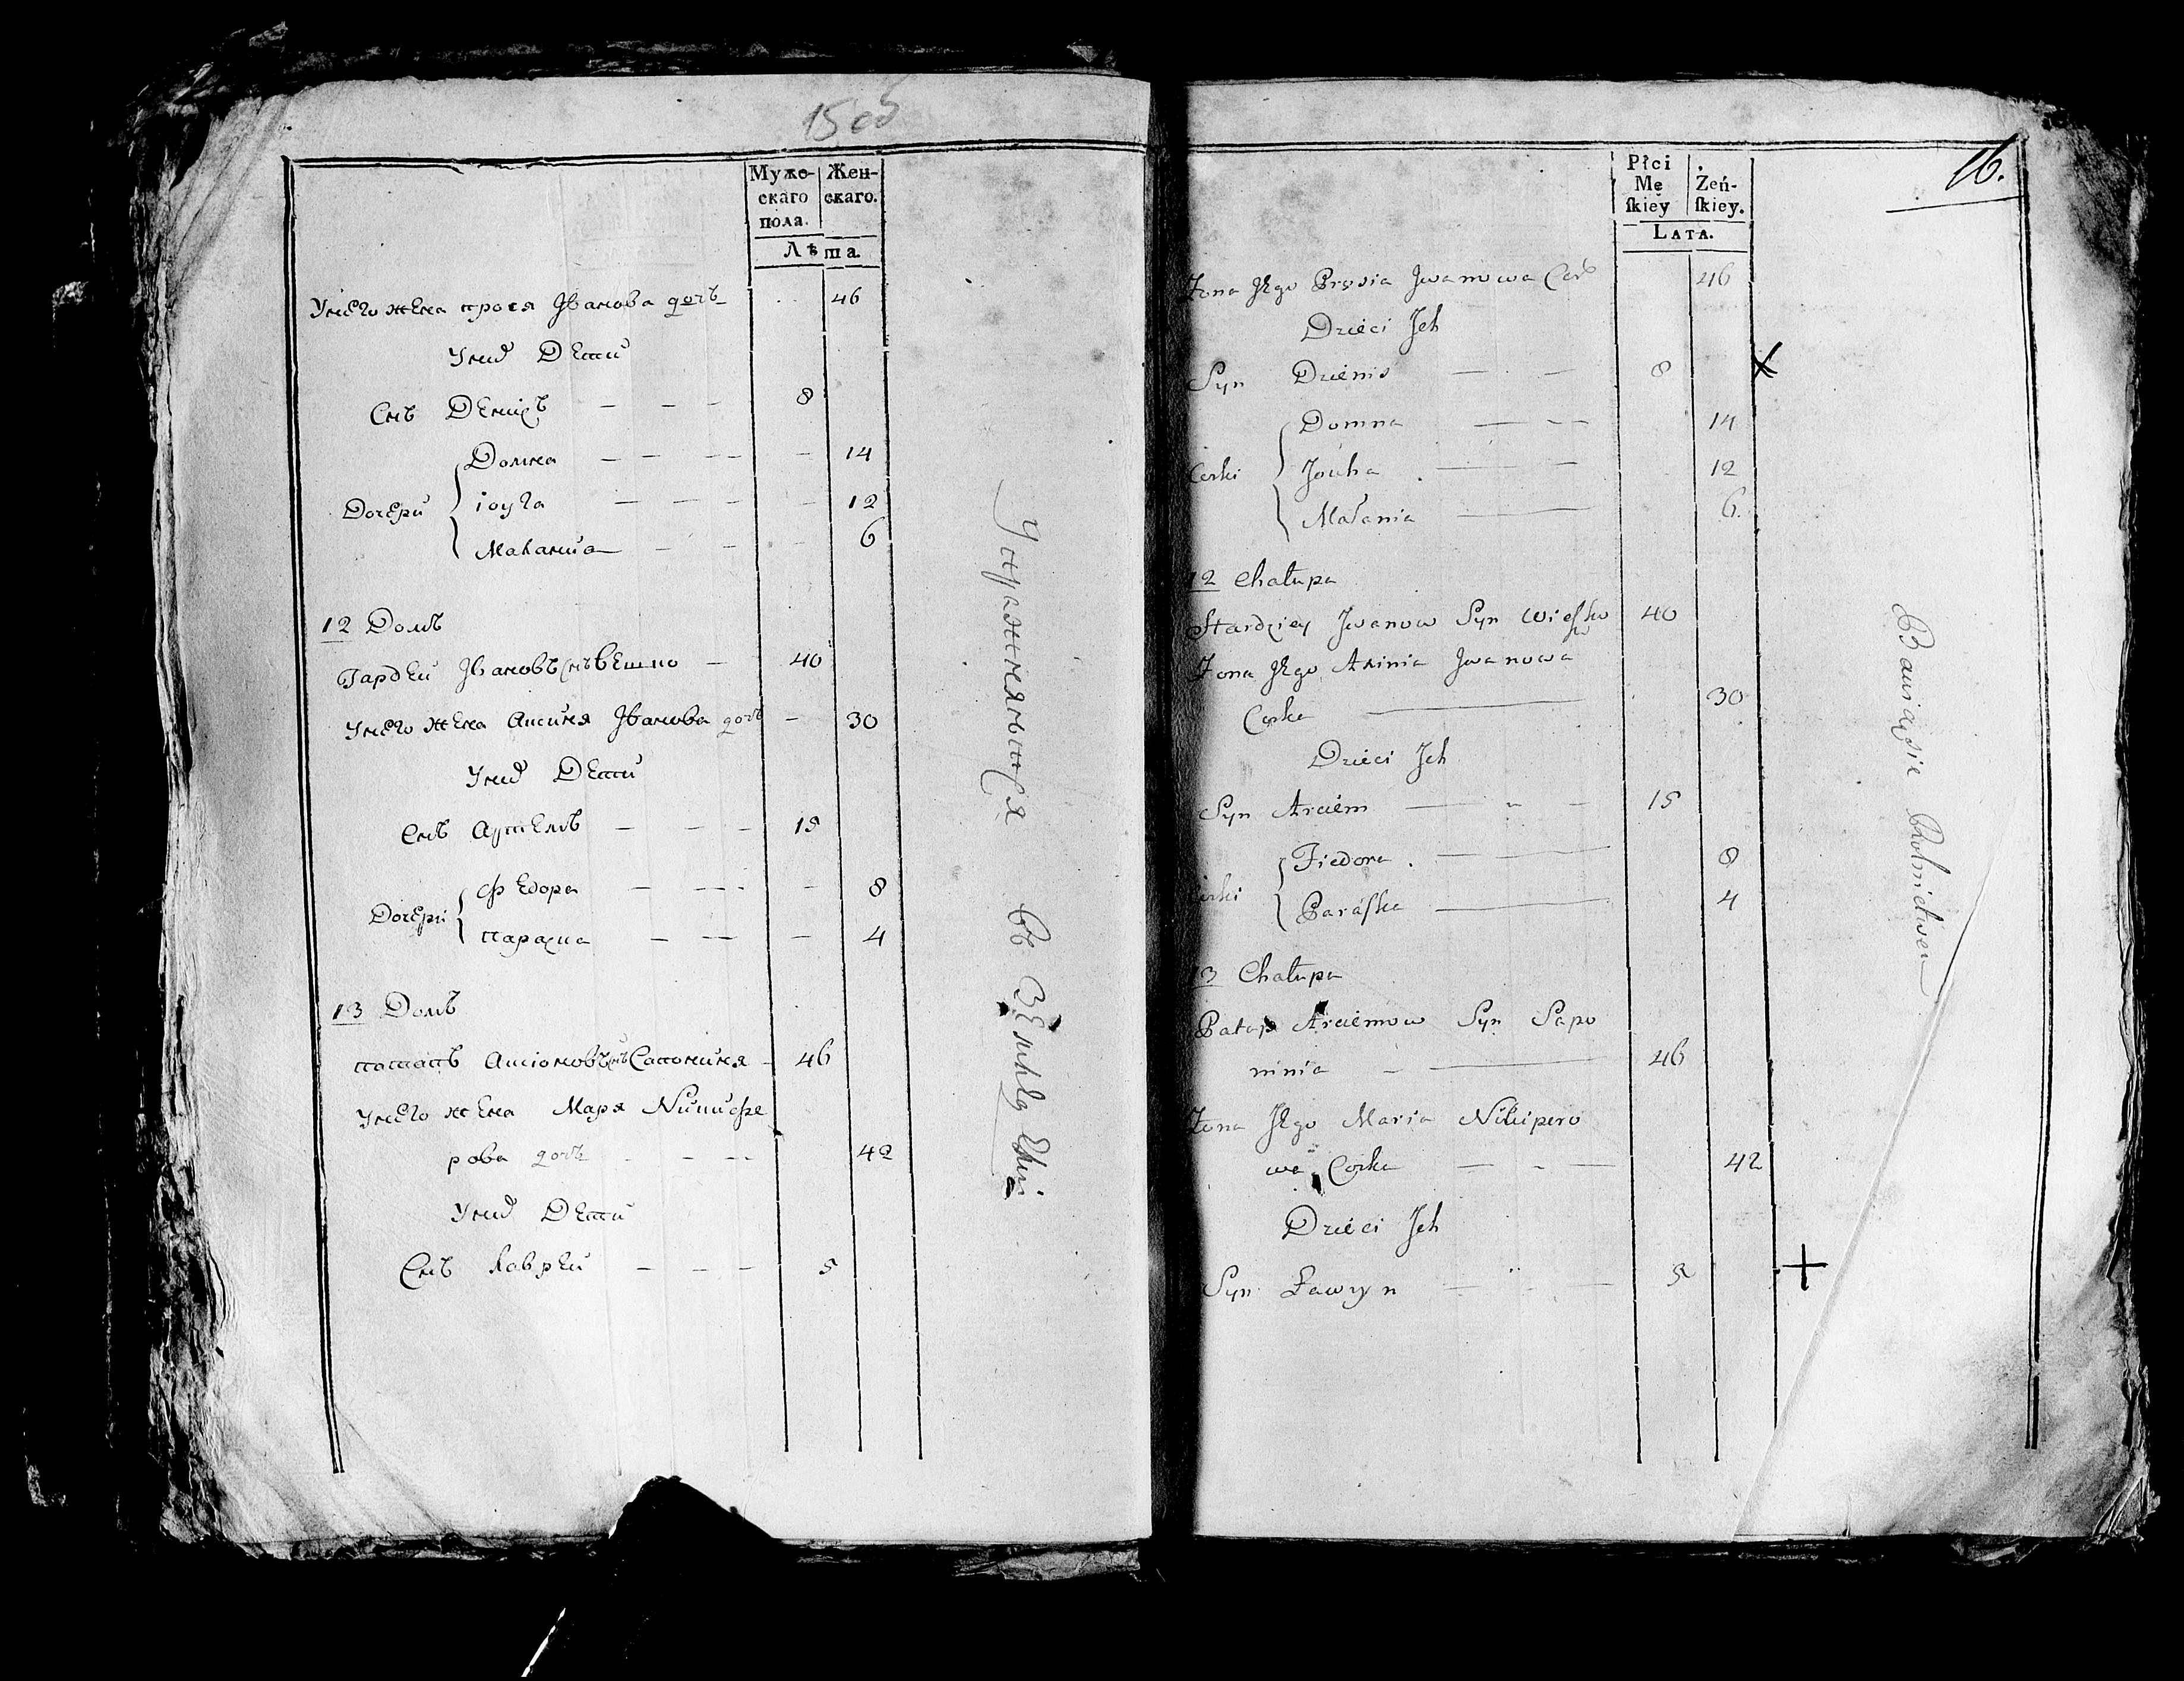 15 об
Муже-
скаго
пола.
Жен-
скаго.
Лѣта.
Унего жена прося Іванова дочъ 46
Уних Дети
Снъ Денисъ 8
Дочери
Домна 14
іоуга 12
Маланиа 6
12 Домъ
Гардеи Івановъ снъ Вешко 40
Унего жена Аксиня Іванова дочъ 30
Уних Дети
Снъ Артемъ 15
Дочери
Федора 8
параска 4
13 Домъ
потапъ снъ Сапониня 46
Унего жена Маря Никифе
рова дочъ 42
Уних Дети
Снъ Лавреи 5
Упражняютца въ
16.
Płci
Mę
ſkiey
Żeń-
ſkiey.
LATA.
Żona Jego Prosia Jwanowa Cor 46
Dzieci Jch
Syn Dzienis 8
Corki
Domna 14
Jouha 12
Małania 6
12 Chałupa
Hardziey Jwanow Syn Wieſko 40
Żona Jego Axinia Jwanowa
Corka 30
Dzieci Jch
Syn Arciem 15
Corki
Fiedora 8
Paraſka 4
13 Chałupa
Patap Arciemow Syn Sapo
ninia 46
Żona Jego Maria Nikipero
wa Corka 42
Dzieci Jch
Syn Ławryn 5
Bawią się Rolnictwem